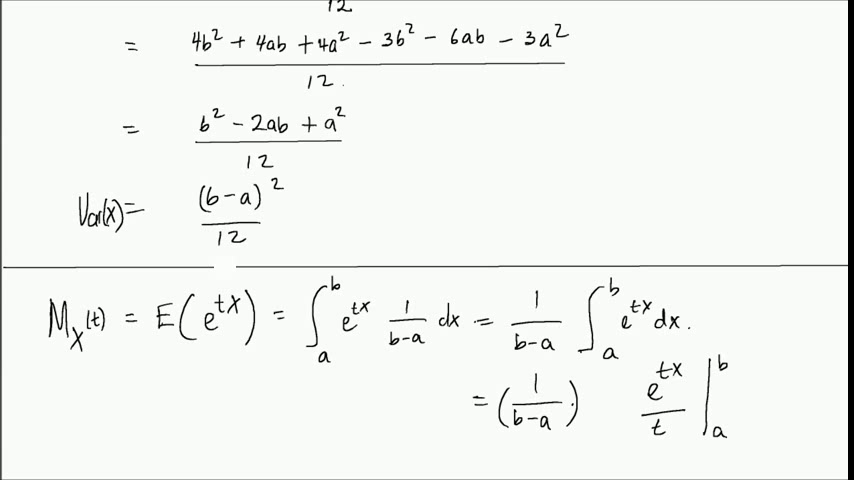 12
= 4b² + 4ab + 4a² - 3b² - 6ab - 3a² / 12.
= b² - 2ab + a² / 12
Var(x) = (b-a)² / 12
M_X(t) = E(e^{tX}) = ∫_a^b e^{tx} 1/(b-a) dx = 1/(b-a) ∫_a^b e^{tx} dx.
= (1/(b-a)) e^{tx}/t |_a^b